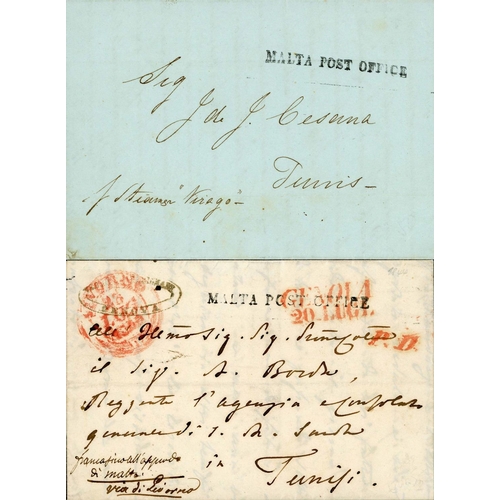 MALTA POST OFFICE
Sig
J de J. Cesana
Tunis
p/ Steamer "Virago"
GENOVA
MALTA POST OFFICE
GENOVA
20. LUGL.
P.D.
All' Illmo Sig. Sig.
il Sig. A. Borda
Reggente l'agenzia e Consolato
generale di S. M. Sarda
in
Tunisi.
franca fino all'approdo
di Malta
via di Livorno